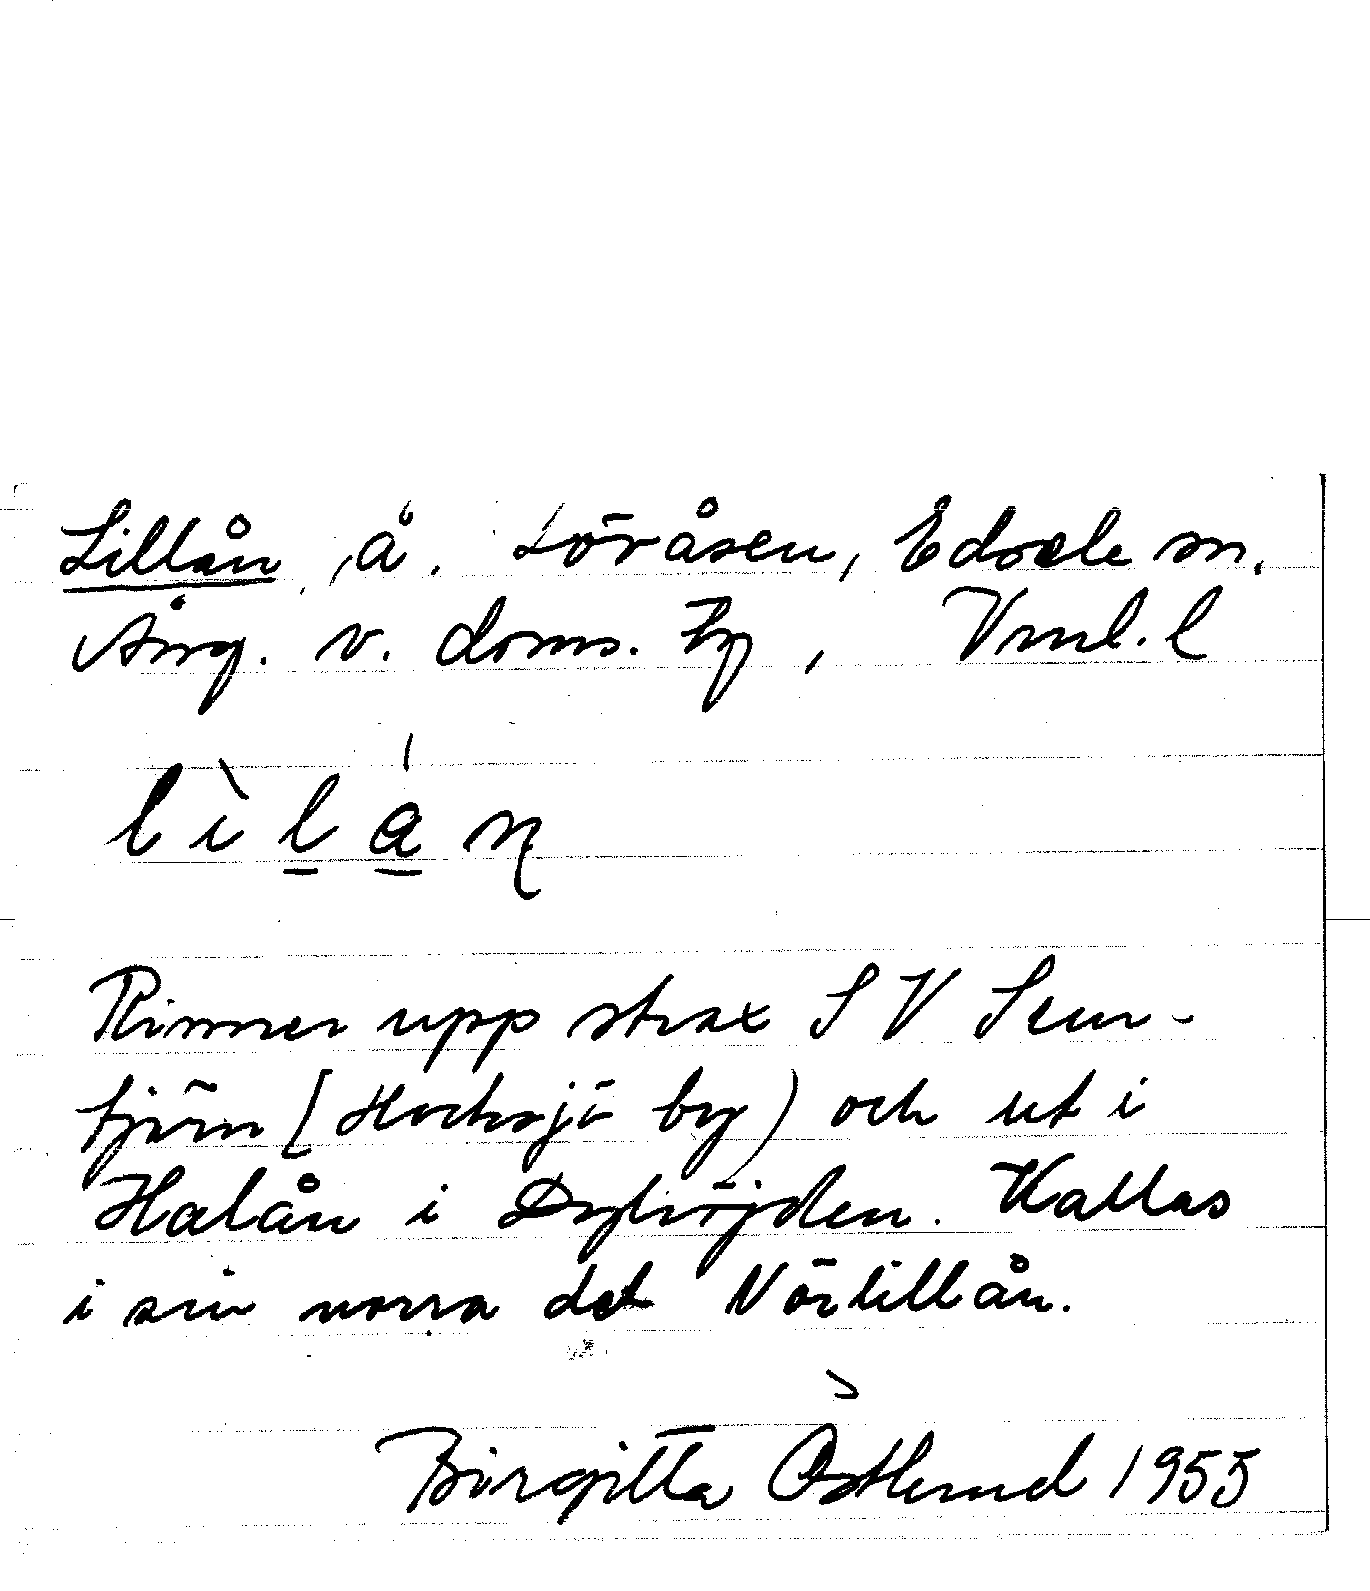 Lillån, å. Lövåsen, Edsele sn.
Ång. v. doms. tg, Vnl. l
lìlán
Rinner upp strax SV Stur-
tjärn (Hocksjö by) och ut i
Halån i Dyhöjden. Kallas
i sin norra del Nörlillån.
Birgitta Östlund 1955